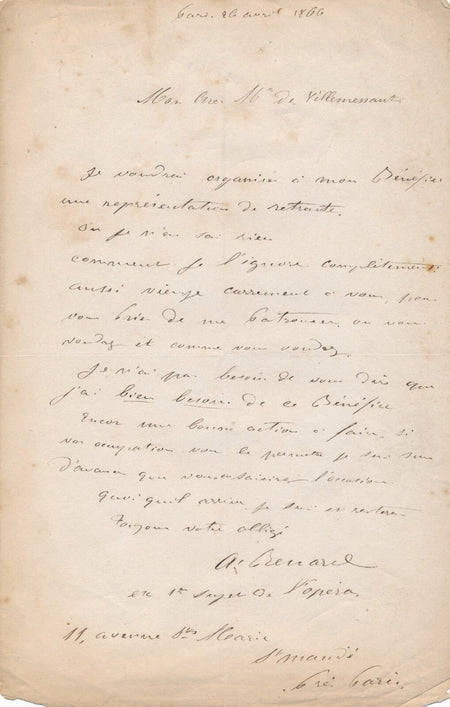 Paris 26 avril 1866
Mon cher Mr de Villemessant.
Je voudrai organiser à mon Bénéfice
une représentation de retraite.
ou je n'en sai rien
comment je l'ignore complètement
aussi vienje carrement à vous, pour
vou prie de me patronser, ou vou
voudrez et comme vou voudrez.
Je n'ai pas besoin de vous dire que
j'ai bien besoin de ce Bénéfice
Encor une bonne action à faire, si
vos occupation vou le permette je sui sur
d'avance que vous saisirez l'occasion
quoiquil arrive, je sui et restera
Toujour votre obligé
A.
ex 1er sujet de l'opéra
11, avenue Ste Marie
St mandé
Prè Paris.